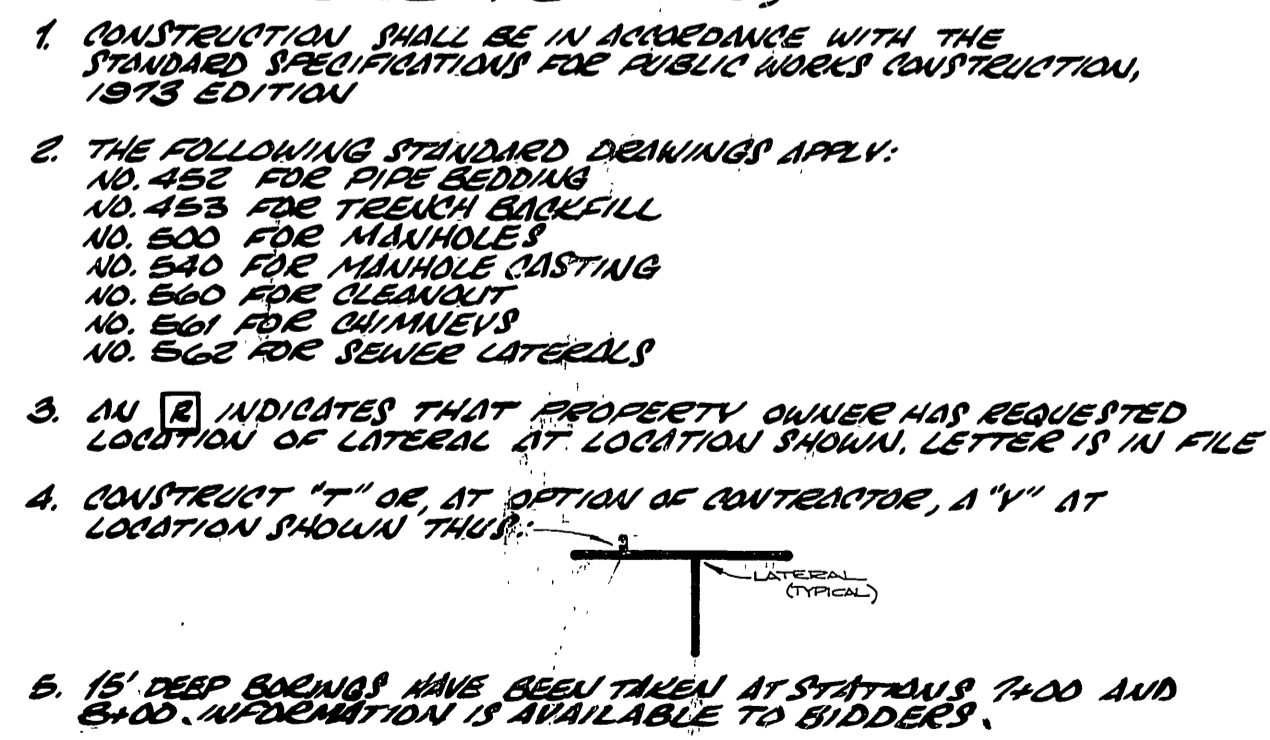 1. CONSTRUCTION SHALL BE IN ACCORDANCE WITH THE
STANDARD SPECIFICATIONS FOR PUBLIC WORKS CONSTRUCTION,
1973 EDITION
2. THE FOLLOWING STANDARD DRAWINGS APPLY:
NO. 452 FOR PIPE BEDDING
NO. 453 FOR TRENCH BACKFILL
NO. 500 FOR MANHOLES
NO. 540 FOR MANHOLE CASTING
NO. 560 FOR CLEANOUT
NO. 561 FOR CHIMNEYS
NO. 562 FOR SEWER LATERALS
3. AN R INDICATES THAT PROPERTY OWNER HAS REQUESTED
LOCATION OF LATERAL AT LOCATION SHOWN. LETTER IS IN FILE
4. CONSTRUCT "T" OR, AT OPTION OF CONTRACTOR, A "Y" AT
LOCATION SHOWN THUS:
LATERAL
(TYPICAL)
5. 15' DEEP BORINGS HAVE BEEN TAKEN AT STATIONS AND
INFORMATION IS AVAILABLE TO BIDDERS.